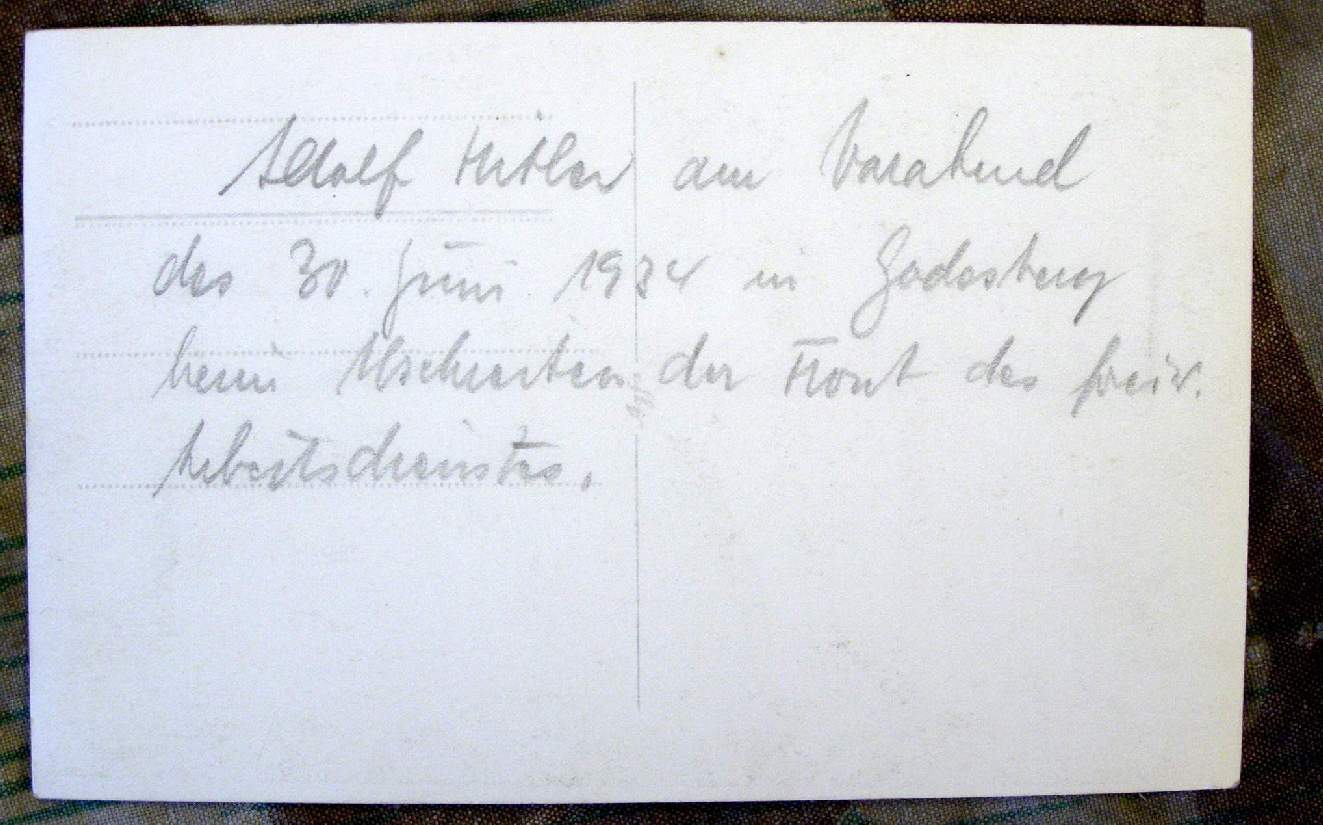 Adolf Hitler am Vorabend
des 30. Juni 1934 in Godesberg
beim Abschreiten der Front des freiw.
Arbeitsdienstes.